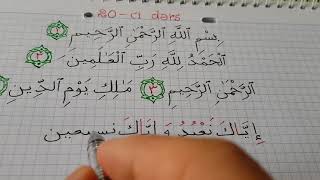 20-ci dərs
بِسْمِ اللَّهِ الرَّحْمَٰنِ الرَّحِيمِ ١
اَلْحَمْدُ لِلَّهِ رَبِّ الْعَالَمِينَ ٢
اَلرَّحْمَٰنِ الرَّحِيمِ ٣ مَالِكِ يَوْمِ الدِّينِ
إِيَّاكَ نَعْبُدُ وَ اِيَّاكَ نستعين